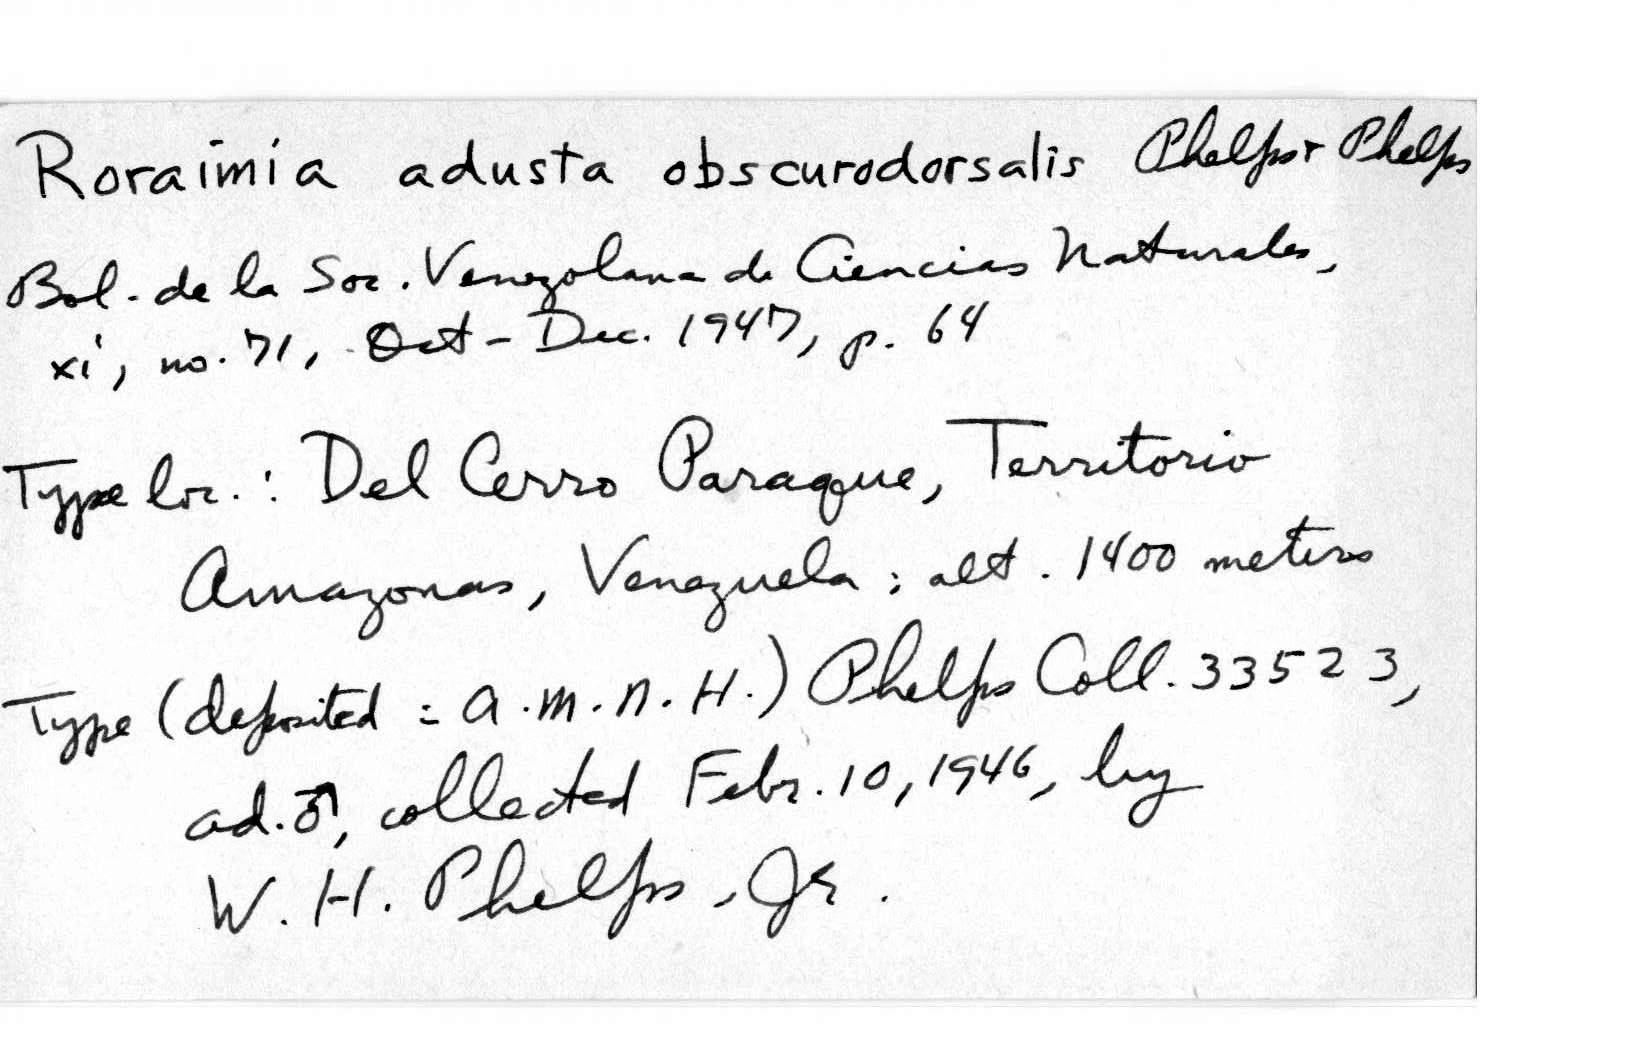 Roraimia adusta obscurodorsalis Phelps + Phelps
Bol. de la Soc. Venezolana de Ciencias Naturales,
xi, no. 71, Oct - Dec. 1947, p. 64
Type loc. : Del Cerro Paraque, Territorio
Amazonas, Venezuela ; alt. 1400 meters
Type (deposited : A.M.N.H.) Phelps Coll. 33523,
ad. ♂, collected Febr. 10, 1946, by
W. H. Phelps, Jr.